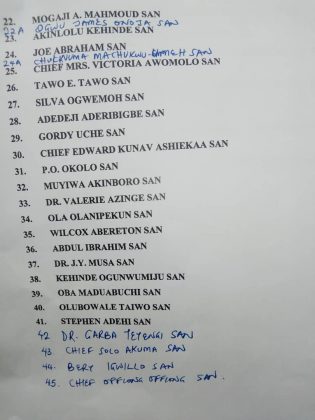 22. MOGAJI A. MAHMOUD SAN
22A OGWU JAMES ONOJA SAN
23. AKINLOLU KEHINDE SAN
24. JOE ABRAHAM SAN
24A CHUKWUMA MACHUKWU SAN
25. CHIEF MRS. VICTORIA AWOMOLO SAN
26. TAWO E. TAWO SAN
27. SILVA OGWEMOH SAN
28. ADEDEJI ADERIBIGBE SAN
29. GORDY UCHE SAN
30. CHIEF EDWARD KUNAV ASHIEKAA SAN
31. P.O. OKOLO SAN
32. MUYIWA AKINBORO SAN
33. DR. VALERIE AZINGE SAN
34. OLA OLANIPEKUN SAN
35. WILCOX ABERETON SAN
36. ABDUL IBRAHIM SAN
37. DR. J.Y. MUSA SAN
38. KEHINDE OGUNWUMIJU SAN
39. OBA MADUABUCHI SAN
40. OLUBOWALE TAIWO SAN
41. STEPHEN ADEHI SAN
42 DR. GARBA TETENGI SAN
43. CHIEF SOLO AKUMA SAN
44. BERY IGWILLO SAN
45. CHIEF OFFIONG OFFIONG SAN.